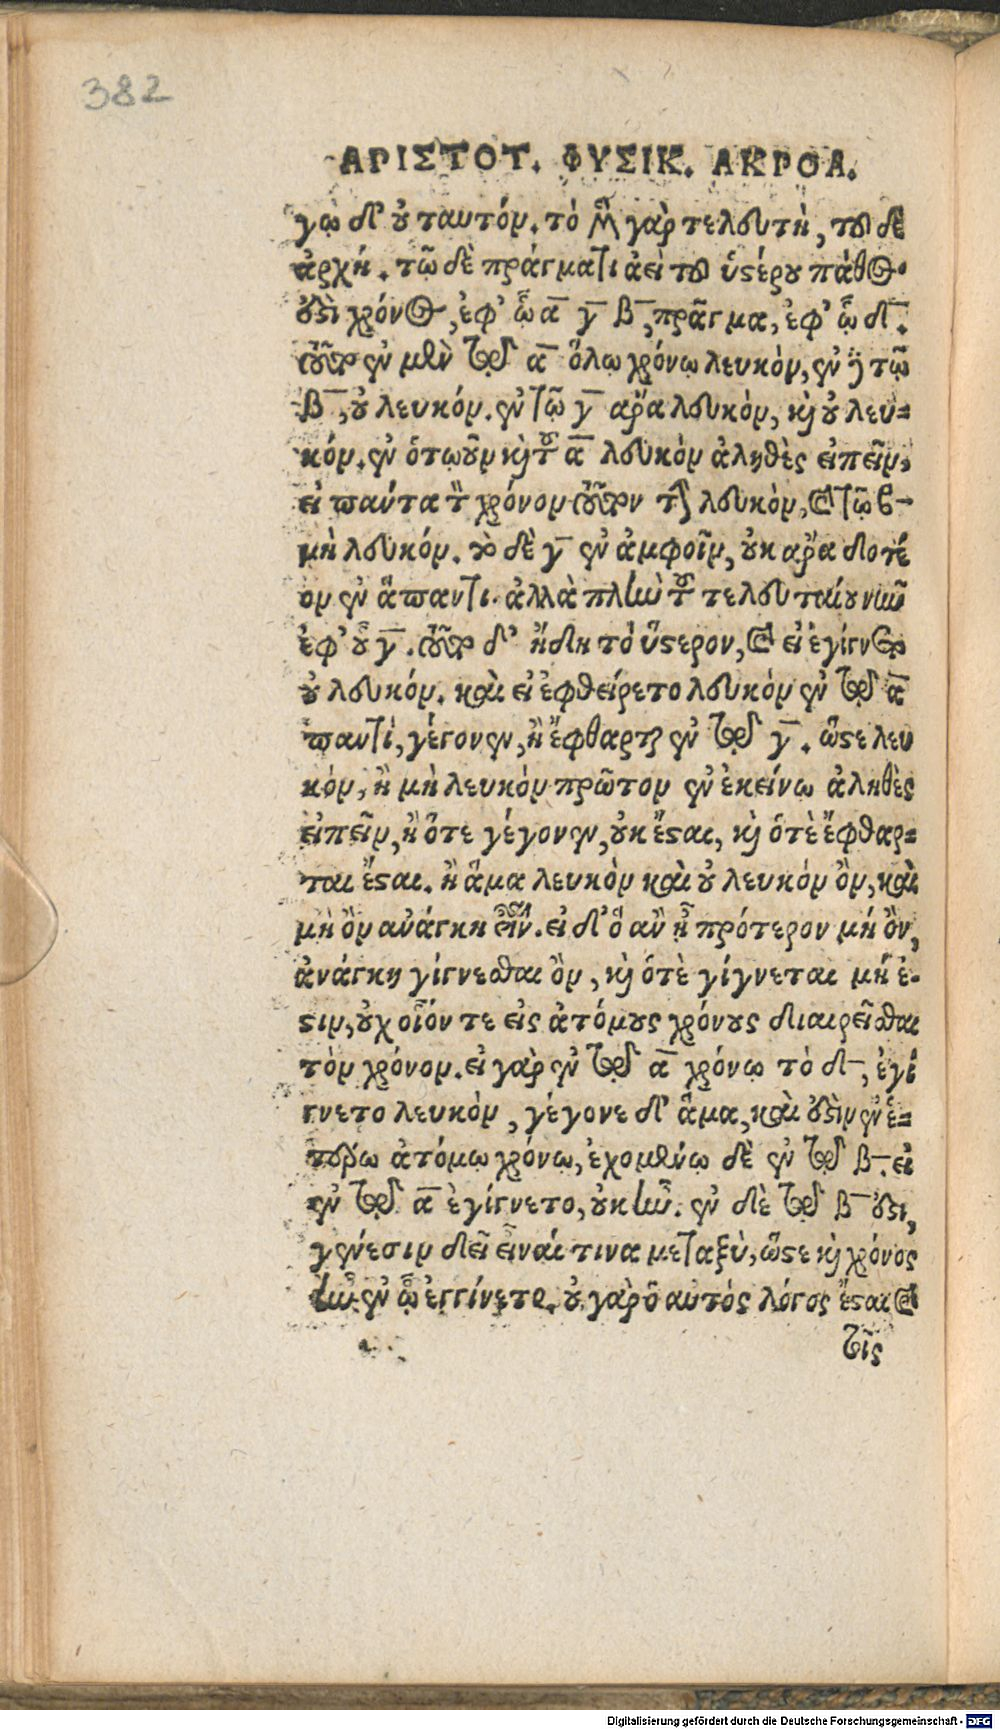 382
ΑΡΙΣΤΟΤ. ΦΥΣΙΚ. ΑΚΡΟΑ.
γῳ δ' οὐ ταυτόν. τὸ μὲν γὰρ τελευτὴ, τοῦ δὲ
ἀρχή. τῷ δὲ πράγματι ἀεὶ τοῦ ὑστέρου πάθος.
οὗ δὴ χρόνος, ἐφ' ᾧ α γ β, πρᾶγμα, ἐφ' ᾧ δ.
τοῦτο ἐν μὲν τῷ α ὅλῳ χρόνῳ λευκὸν, ἐν δὲ τῷ
β, οὐ λευκόν. ἐν τῷ γ ἄρα λευκὸν, καὶ οὐ λευ=
κόν. ἐν ὁτωοῦν καὶ τοῦ α λευκὸν ἀληθὲς εἰπεῖν,
εἰ πάντα τὸν χρόνον τοῦτον ἦν λευκὸν, καὶ τῷ β
μὴ λευκόν. τὸ δὲ γ ἐν ἀμφοῖν, οὐκ ἄρα δοτέ
ον ἐν ἅπαντι. ἀλλὰ πλὴν τοῦ τελευταίου νῦν
ἐφ' οὗ γ. τοῦτο δ' ἤδη τὸ ὕστερον, καὶ εἰ ἐγίγνετο
οὐ λευκόν. καὶ εἰ ἐφθείρετο λευκὸν ἐν τῷ α
παντὶ, γέγονεν, ἢ ἔφθαρται ἐν τῷ γ. ὥστε λευ
κὸν, ἢ μὴ λευκὸν πρῶτον ἐν ἐκείνῳ ἀληθὲς
εἰπεῖν, ἢ ὅτε γέγονεν, οὐκ ἔσται, καὶ ὅτε ἔφθαρ=
ται ἔσται. ἢ ἅμα λευκὸν καὶ οὐ λευκόν ὂν, καὶ
μὴ ὂν ἀνάγκη εἶναι. εἰ δ' ὃ ἂν ᾖ πρότερον μὴ ὂν,
ἀνάγκη γίγνεσθαι ὂν, καὶ ὅτε γίγνεται μή ἐ-
στιν, οὐχ οἷόν τε εἰς ἀτόμους χρόνους διαιρεῖσθαι
τὸν χρόνον. εἰ γὰρ ἐν τῷ α χρόνῳ τὸ δ, ἐγί
γνετο λευκὸν, γέγονε δ' ἅμα, καὶ ἔστιν ἐν ἑ=
τέρῳ ἀτόμῳ χρόνῳ, ἐχομένῳ δὲ ἐν τῷ β. εἰ
ἐν τῷ α ἐγίγνετο, οὐκ ἦν. ἐν δὲ τῷ β ἔστι,
γένεσιν δεῖ εἶναί τινα μεταξὺ, ὥστε καὶ χρόνος
ἦν ἐν ᾧ ἐγγίνετο. οὐ γὰρ ὁ αὐτὸς λόγος ἔσται καὶ
τοῖς
Digitalisierung gefördert durch die Deutsche Forschungsgemeinschaft - DFG